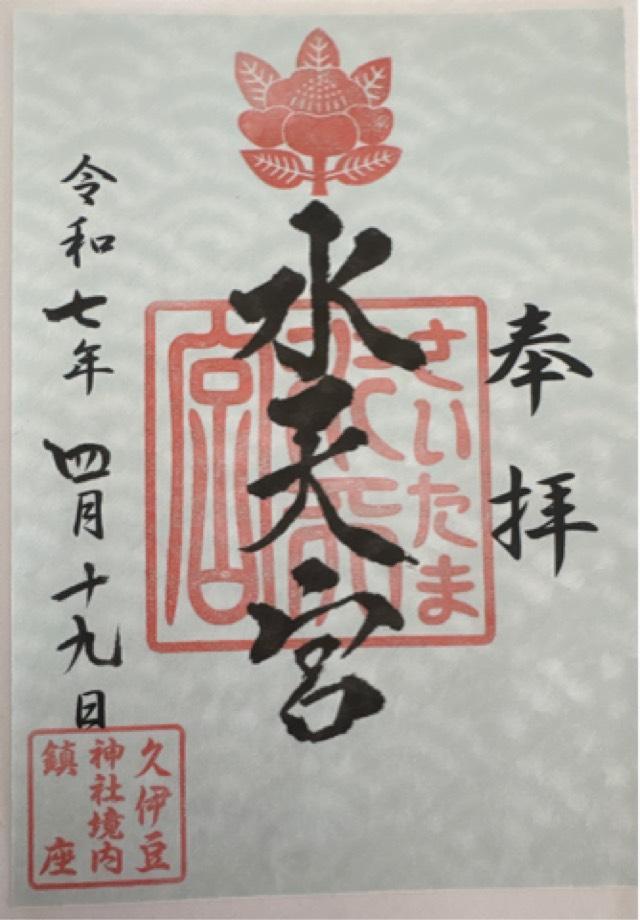 奉拝
さいたま
水天宮
水天宮
令和七年四月十九日
久伊豆
神社境内
鎮座